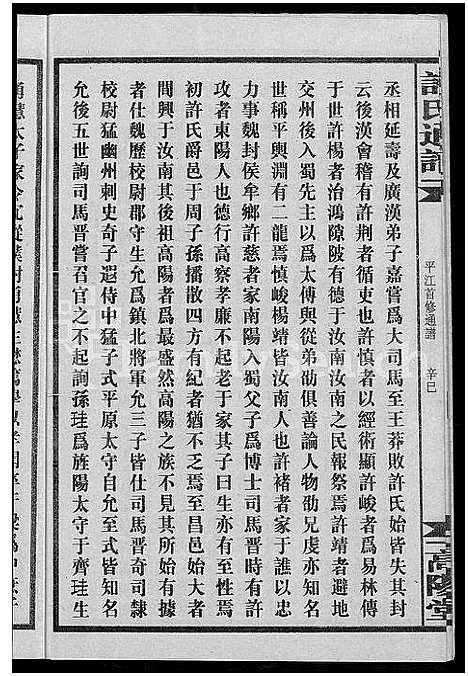 許氏通譜
平江首修通譜
辛巳
高陽堂
丞相延壽及廣漢弟子嘉嘗爲大司馬至王莽敗許氏始皆失其封
云後漢會稽有許荆者循吏也許慎者以經術顯許峻者爲易林傳
于世許楊者治鴻隙陂有德于汝南汝南之民報祭焉許靖者避地
交州後入蜀先主以爲太傅與從弟劭俱善論人物劭兄虔亦知名
世稱平輿淵有二龍焉慎峻楊靖皆汝南人也許褚者家于譙以忠
力事魏封侯牟鄉許慈者家南陽入蜀父子爲博士司馬晉時有許
攻者東陽人也德行高察孝廉不起老于家其子曰生亦有至性焉
初許氏爵邑于周子孫播散四方有紀者猶不乏焉至昌邑始大者
間興于汝南其後祖高陽者爲最盛然高陽之族不見其所始有據
者仕魏歷校尉郡守生允爲鎮北將軍允三子皆仕司馬晋奇司隸
校尉猛幽州刺史奇子遐侍中猛子式平原太守自允至式皆知名
允後五世詢司馬晋嘗召官之不起詢孫珪爲旌陽太守于齊珪生